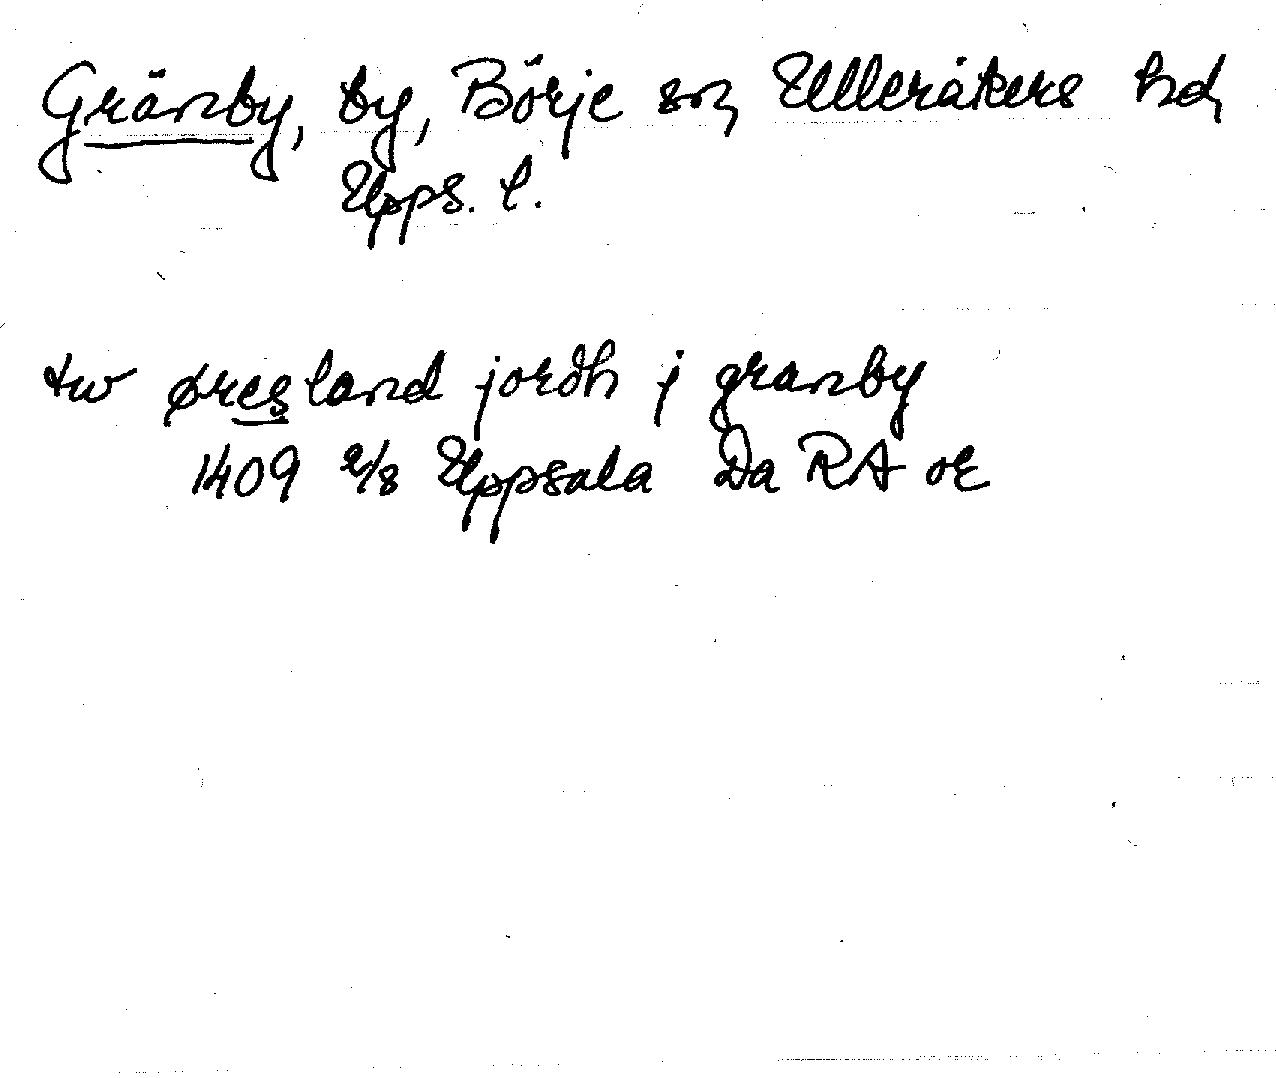 Gränby, by, Börje sn, Ulleråkers hd,
Upps. l.
tw øresland jordh j granby
1409 2/8 Uppsala Da RA or